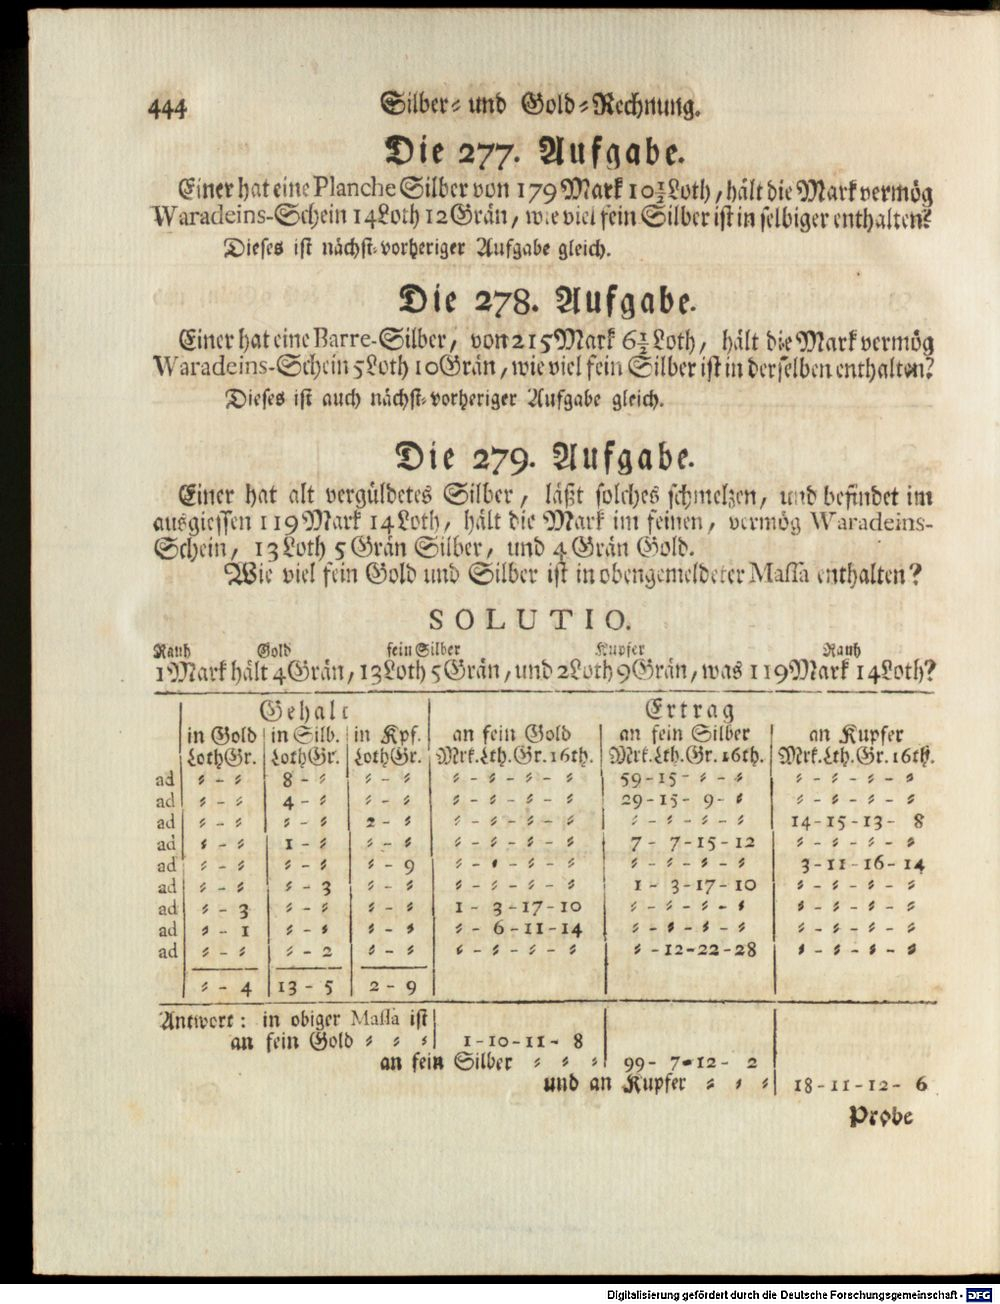 444 Silber- und Gold-Rechnung.
Die 277. Aufgabe.
Einer hat eine Planche Silber von 179 Mark 10½ Loth, hält die Mark vermög
Waradeins-Schein 14 Loth 12 Grän, wie viel fein Silber ist in selbiger enthalten?
Dieses ist nächst-vorheriger Aufgabe gleich.
Die 278. Aufgabe.
Einer hat eine Barre-Silber, von 215 Mark 6½ Loth, hält die Mark vermög
Waradeins-Schein 5 Loth 10 Grän, wie viel fein Silber ist in derselben enthalten?
Dieses ist auch nächst-vorheriger Aufgabe gleich.
Die 279. Aufgabe.
Einer hat alt vergüldetes Silber, läßt solches schmelzen, und befindet im
ausgiessen 119 Mark 14 Loth, hält die Mark im feinen, vermög Waradeins-
Schein, 13 Loth 5 Grän Silber, und 4 Grän Gold.
Wie viel fein Gold und Silber ist in obengemeldeter Massa enthalten?
SOLUTIO.
Rauh Gold fein Silber Kupfer Rauh
1 Mark hält 4 Grän, 13 Loth 5 Grän, und 2 Loth 9 Grän, was 119 Mark 14 Loth?
Gehalt Ertrag
in Gold in Silb. in Kpf. an fein Gold an fein Silber an Kupfer
Loth Gr. Loth Gr. Loth Gr. Mrk. Lth. Gr. 16th. Mrk. Lth. Gr. 16th. Mrk. Lth. Gr. 16th.
ad ⸗ - ⸗ 8 - ⸗ ⸗ - ⸗ ⸗ - ⸗ - ⸗ - ⸗ 59 - 15 - ⸗ - ⸗ ⸗ - ⸗ - ⸗ - ⸗
ad ⸗ - ⸗ 4 - ⸗ ⸗ - ⸗ ⸗ - ⸗ - ⸗ - ⸗ 29 - 15 - 9 - ⸗ ⸗ - ⸗ - ⸗ - ⸗
ad ⸗ - ⸗ ⸗ - ⸗ 2 - ⸗ ⸗ - ⸗ - ⸗ - ⸗ ⸗ - ⸗ - ⸗ - ⸗ 14 - 15 - 13 - 8
ad ⸗ - ⸗ 1 - ⸗ ⸗ - ⸗ ⸗ - ⸗ - ⸗ - ⸗ 7 - 7 - 15 - 12 ⸗ - ⸗ - ⸗ - ⸗
ad ⸗ - ⸗ ⸗ - ⸗ ⸗ - 9 ⸗ - ⸗ - ⸗ - ⸗ ⸗ - ⸗ - ⸗ - ⸗ 3 - 11 - 16 - 14
ad ⸗ - ⸗ ⸗ - 3 ⸗ - ⸗ ⸗ - ⸗ - ⸗ - ⸗ 1 - 3 - 17 - 10 ⸗ - ⸗ - ⸗ - ⸗
ad ⸗ - 3 ⸗ - ⸗ ⸗ - ⸗ 1 - 3 - 17 - 10 ⸗ - ⸗ - ⸗ - ⸗ ⸗ - ⸗ - ⸗ - ⸗
ad ⸗ - 1 ⸗ - ⸗ ⸗ - ⸗ ⸗ - 6 - 11 - 14 ⸗ - ⸗ - ⸗ - ⸗ ⸗ - ⸗ - ⸗ - ⸗
ad ⸗ - ⸗ ⸗ - 2 ⸗ - ⸗ ⸗ - ⸗ - ⸗ - ⸗ ⸗ - 12 - 22 - 28 ⸗ - ⸗ - ⸗ - ⸗
⸗ - 4 13 - 5 2 - 9
Antwort: in obiger Massa ist
an fein Gold ⸗ ⸗ ⸗ 1 - 10 - 11 - 8
an fein Silber ⸗ ⸗ ⸗ 99 - 7 - 12 - 2
und an Kupfer ⸗ ⸗ ⸗ 18 - 11 - 12 - 6
Probe
Digitalisierung gefördert durch die Deutsche Forschungsgemeinschaft - DFG